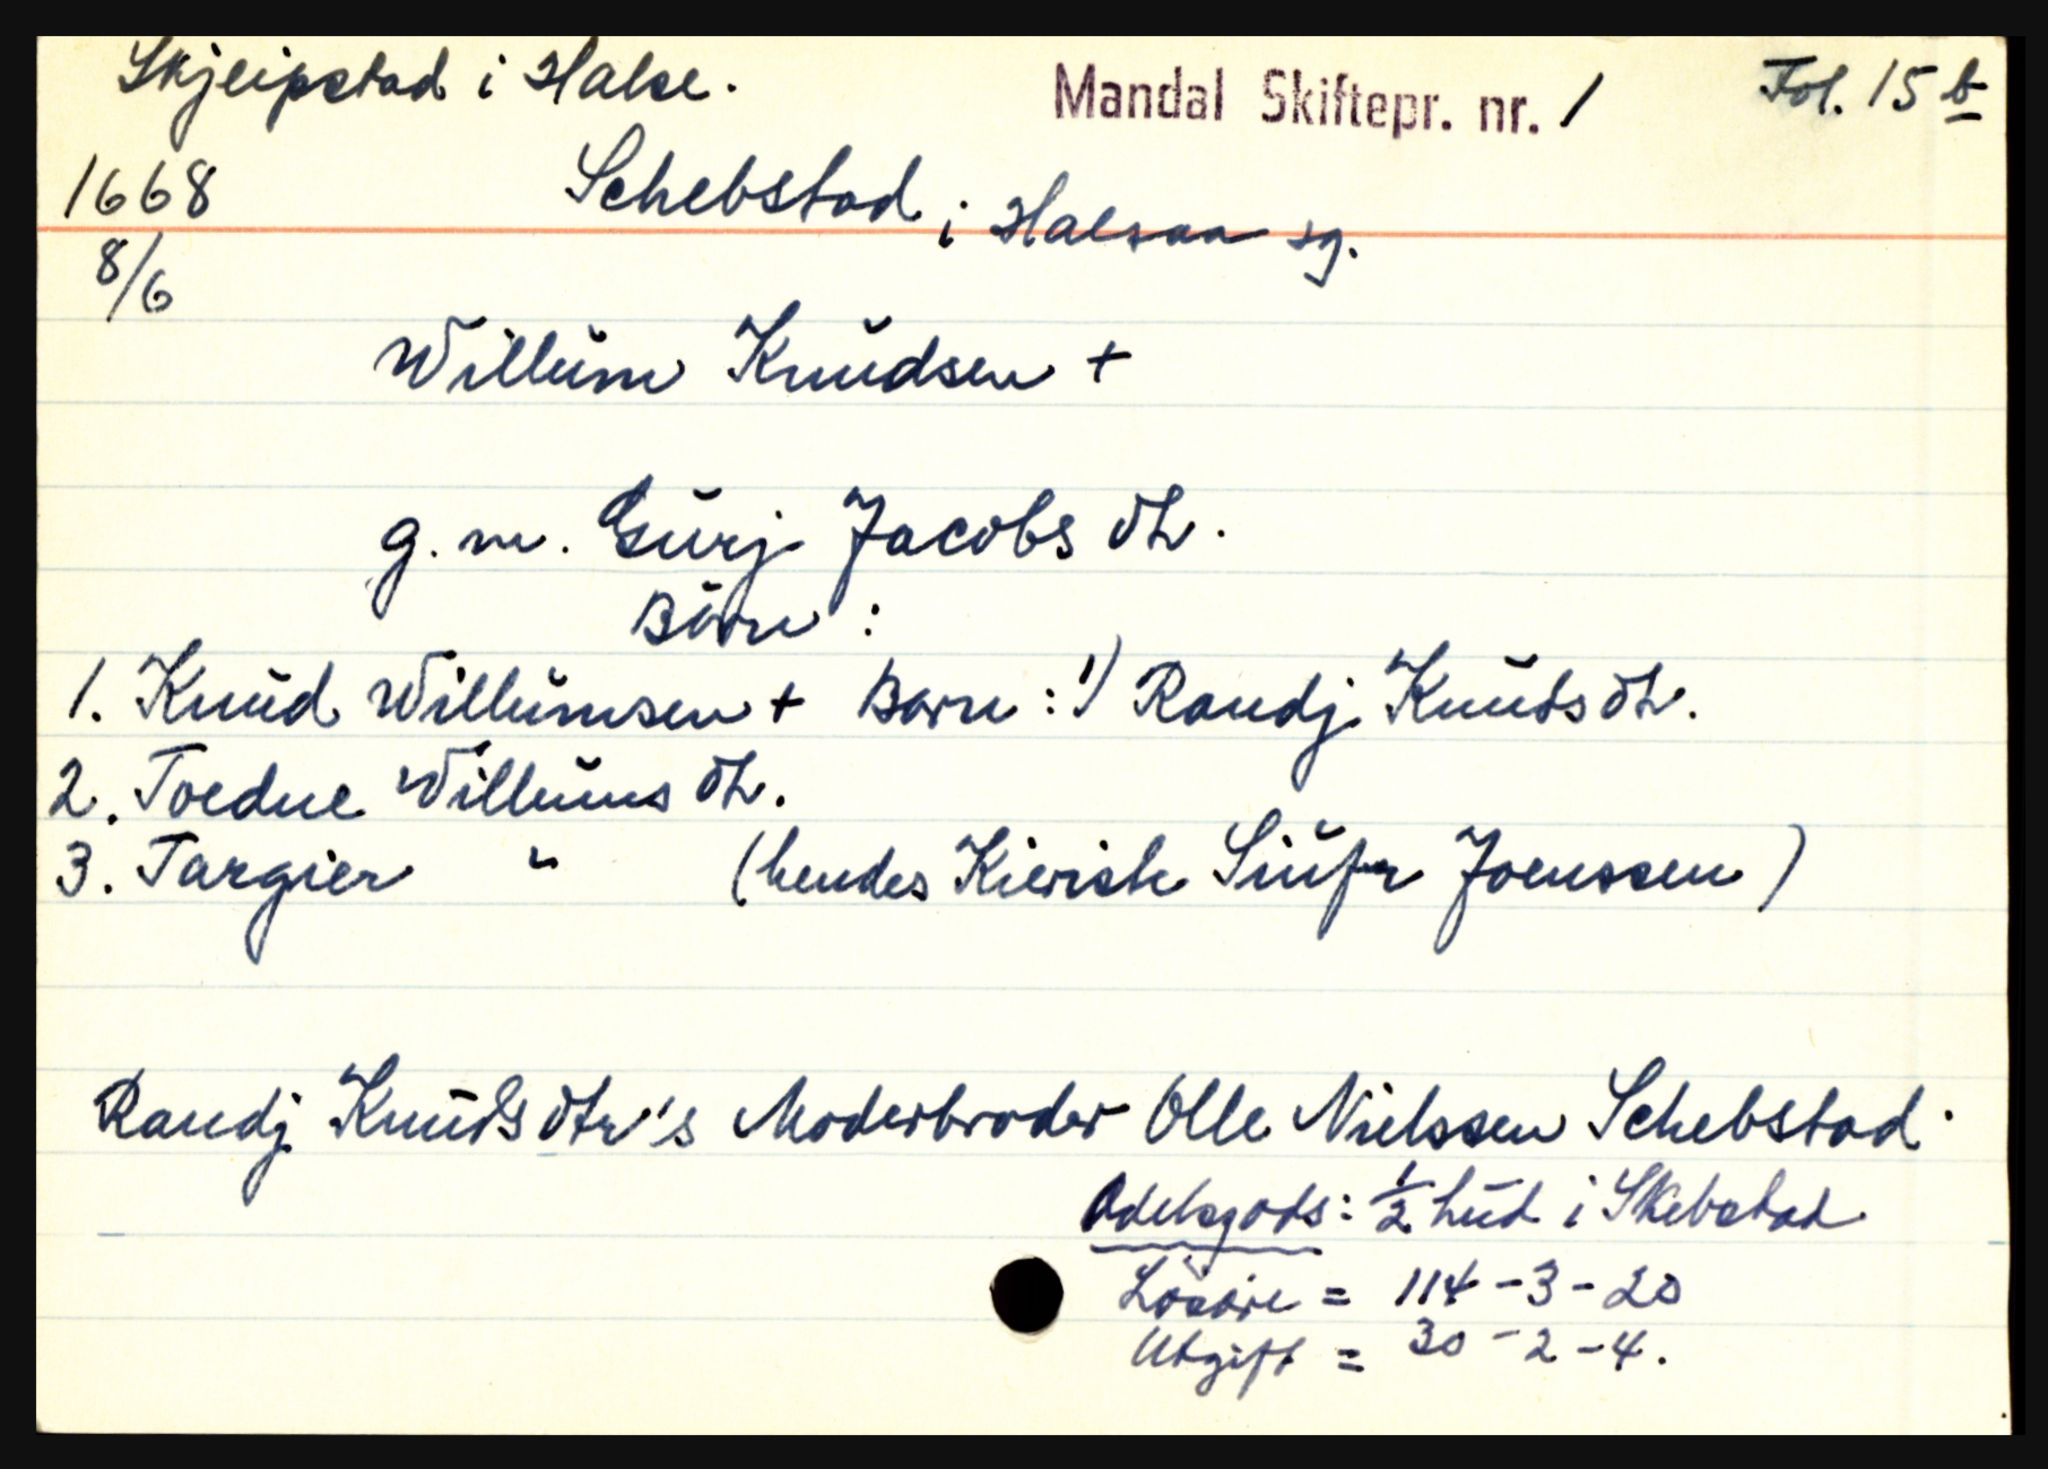 Skjeipstad i Halse. Mandal Skiftepr. nr. 1 Fol. 15 b
1668 Schebstad i Halsaa sg.
8/6
Willŭm Knŭdsen +
g. m. Gŭrj Jacobs dtr.
Børn :
1. Knŭd Willŭmsen + Børn : 1) Randj Knŭds dtr.
2. Toedne Willŭms dtr.
3. Targier " (hendes Kierist Siŭfr Joenssen)
Randj Knŭds dtr's Moderbroder Olle Nielssen Schebstad.
Odelsgods: 1/2 hŭd i Skebstad
Løsøre = 114 - 3 - 20
Utgift = 30 - 2 - 4.